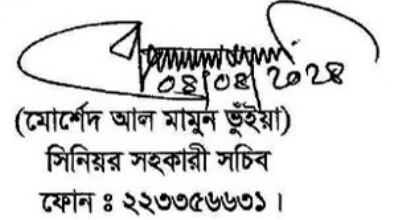 ০৪|০৪|২০২৪
(মোর্শেদ আল মামুন ভুঁইয়া)
সিনিয়র সহকারী সচিব
ফোন ঃ ২২৩৩৫৬৬৩১।